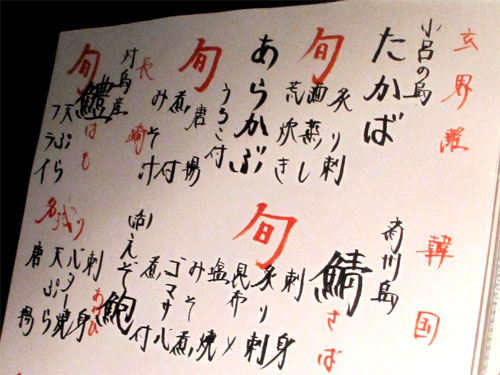 玄界灘
小呂の島
たかば
旬
炙り刺
酒蒸し
荒炊き
あらかぶ
旬
うろこ付
唐揚
煮付
みそ汁
長崎
対馬産
鱧
はも
旬
天ぷら
フライ
韓国
済州島
鯖
さば
旬
刺身
炙り刺
昆布〆
塩焼
みそ煮
ゴマサバ
煮付
活えぞ鮑
あわび
刺身
バター焼
天ぷら
唐揚
名残り